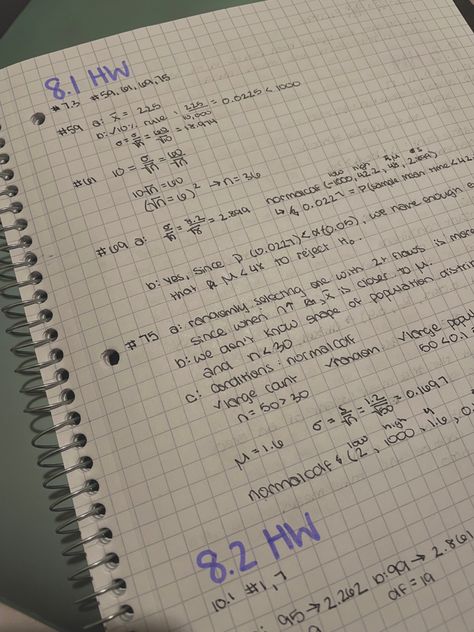 8.1 HW
* 7.3 #59, 61, 69, 75
#59 a: x̄ = 225
b: √10% rule: 225/10,000 = 0.0225 < 1000
σ = σ/√n = 60/√10 = 18.974
#61 10 = σ/√n = 60/√n
10√n = 60
(√n = 6)² → n = 36
#69 a: σ/√n = 8.2/√8 = 2.899
low high μ σ
normalcdf (-1000, 42.2, 48, 2.899)
↳ 0.0227 = P(sample mean time < 42
b: yes, since p (0.0227) < α(0.05), we have enough
that μ < 48 to reject H₀.
#75 a: randomly selecting one with 2+ flaws is more
since when n↑ x̄ is closer to μ.
b: we don't know shape of population distri
and n < 30
c: conditions: normalcdf
√large count √random √large popu
n = 50 > 30 50 < 0.1
μ = 1.6 σ = σ/√n = 1.2/√50 = 0.1697
low high μ
normalcdf (2, 1000, 1.6, 0.
8.2 HW
10.1 #1, 7
: 95 → 2.262 b: 99 → 2.861
df = 19